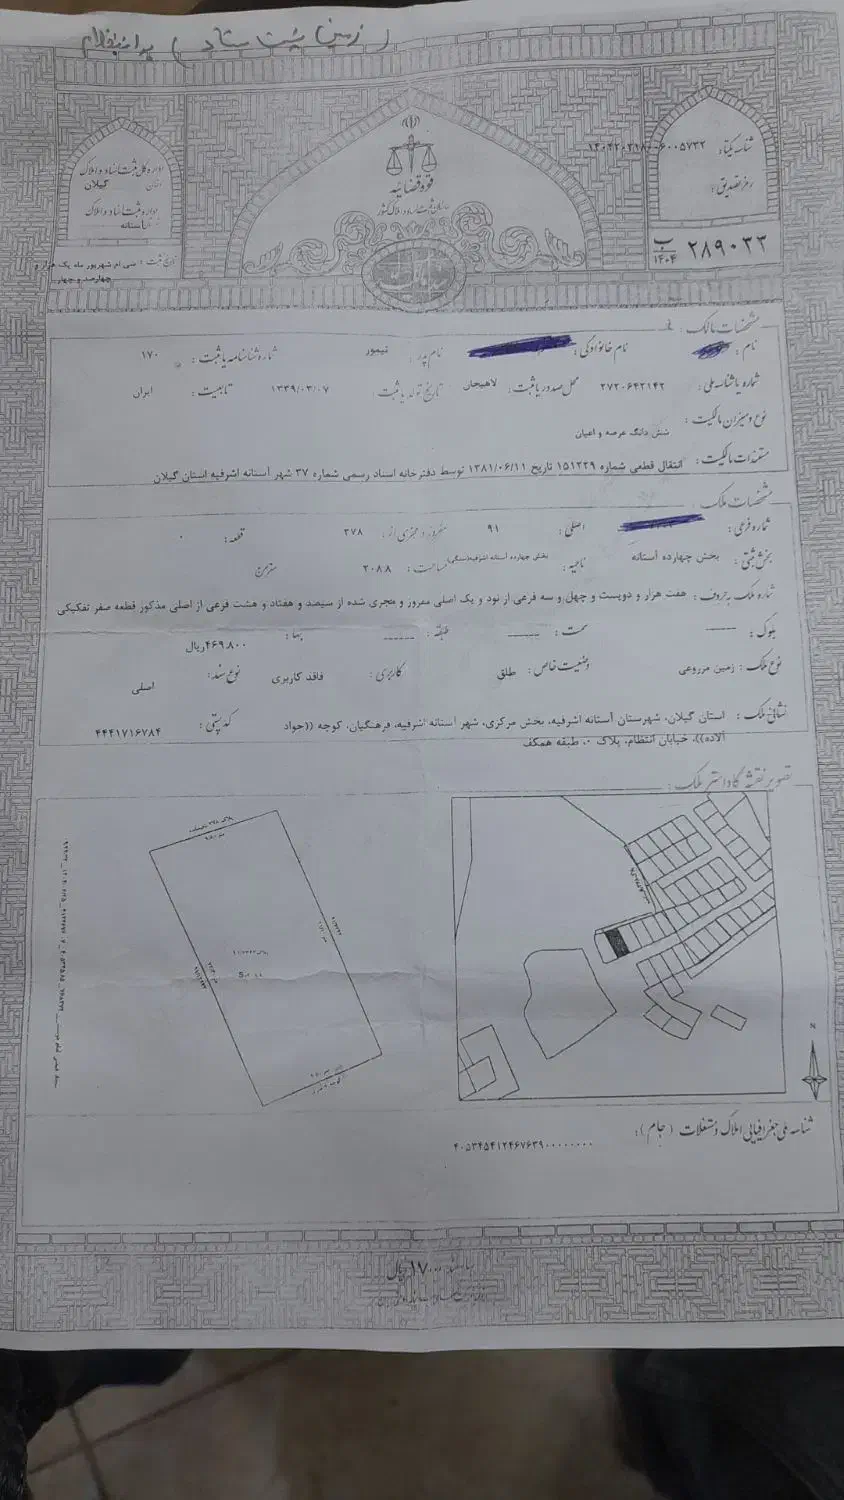 (زمین پشت ستاد)
قوه قضائیه
سازمان ثبت اسناد و املاک کشور
اداره کل ثبت اسناد و املاک
استان گیلان
اداره ثبت اسناد و املاک
آستانه
تاریخ ثبت : سی ام شهریور ماه یک هزار و
چهارصد و چهار
شناسه یکتا:
رمز تصدیق:
۲۸۹۰۳۳ ب ۱۴۰۴
مشخصات مالک :
نام : نام خانوادگی : نام پدر : تیمور شماره شناسنامه یا ثبت : ۱۷۰
شماره یا شناسه ملی : ۲۷۲۰۶۴۲۱۴۲ محل صدور یا ثبت : لاهیجان تاریخ تولد یا ثبت : ۱۳۳۹/۰۳/۰۷ تابعیت : ایران
نوع و میزان مالکیت : شش دانگ عرصه و اعیان
مستندات مالکیت : انتقال قطعی شماره ۱۵۱۲۲۹ تاریخ ۱۳۸۱/۰۶/۱۱ توسط دفترخانه اسناد رسمی شماره ۳۷ شهر آستانه اشرفیه استان گیلان
مشخصات ملک :
شماره فرعی : اصلی : ۹۱ مفروز و مجزی از : ۳۷۸ قطعه : ۰
بخش ثبتی : بخش چهارده آستانه ناحیه : بخش چهارده آستانه اشرفیه مساحت : ۲۰۸۸ مترمربع
شماره ملک به حروف : هفت هزار و دویست و چهل و سه فرعی از نود و یک اصلی مفروز و مجزی شده از سیصد و هفتاد و هشت فرعی از اصلی مذکور قطعه صفر تفکیکی
بلوک : ------ سمت : ------ طبقه : ------ بها : ۴۶۹,۸۰۰ریال
نوع ملک : زمین مزروعی وضعیت خاص : طلق کاربری : فاقد کاربری نوع سند : اصلی
نشانی ملک : استان گیلان، شهرستان آستانه اشرفیه، بخش مرکزی، شهر آستانه اشرفیه، فرهنگیان، کوچه ((جواد کدپستی : ۴۴۴۱۷۱۶۷۸۴
آلاده))، خیابان انتظام، پلاک ۰، طبقه همکف
تصویر نقشه کاداستر ملک :
N
شناسه ملی جغرافیایی املاک و مستغلات (جام) :